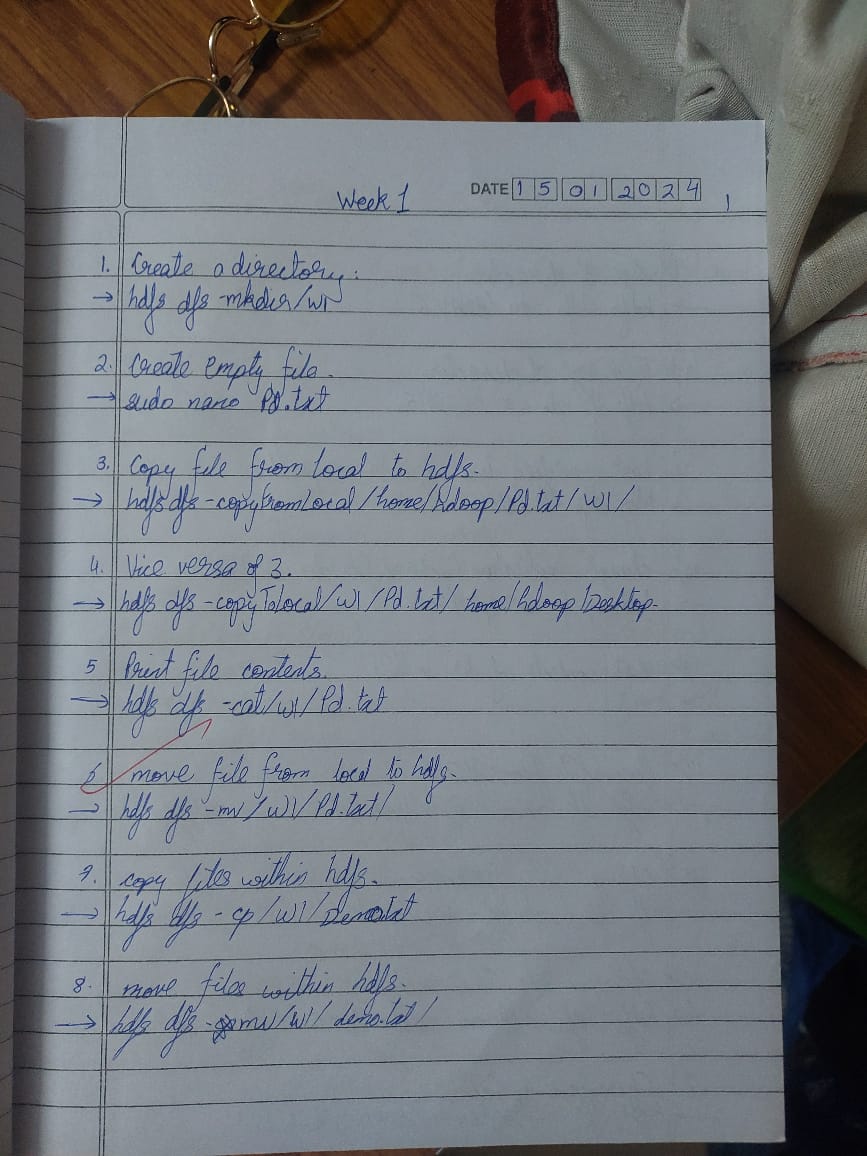 Week 1
DATE 15 01 2024
1
1. Create a directory:
→ hdfs dfs -mkdir/w1
2. Create empty file.
→ sudo nano Pd.txt
3. Copy file from local to hdfs.
→ hdfs dfs -copyfromLocal /home/hdoop/Pd.txt/W1/
4. Vice versa of 3.
→ hdfs dfs -copyToLocal/W1/Pd.txt/ home/hdoop/Desktop.
5 Print file contents.
→ hdfs dfs -cat/w1/Pd.txt
6 move file from local to hdfs.
→ hdfs dfs -mv/w1/Pd.txt/
7. copy files within hdfs.
→ hdfs dfs -cp/W1/Demo.txt
8. move files within hdfs.
→ hdfs dfs -mv/w1/demo.txt/